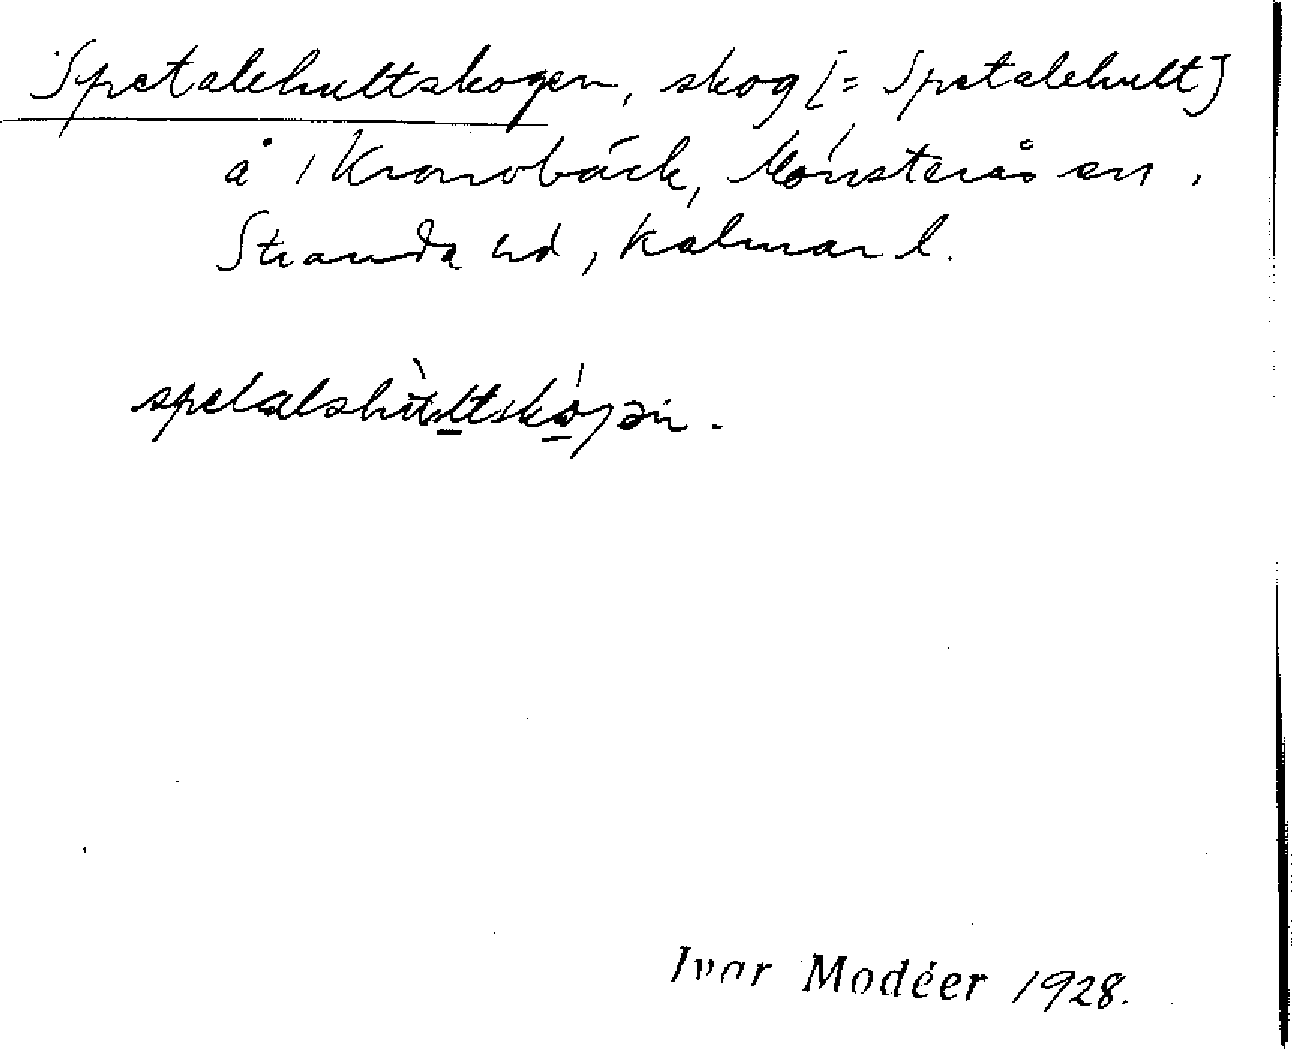 Spetalehultskogen, skog [= Spetalehult]
å Kronobäck, Mönsterås sn.
Stranda hd, Kalmar l.
spetalshùltskógən.
Ivar Modéer 1928.